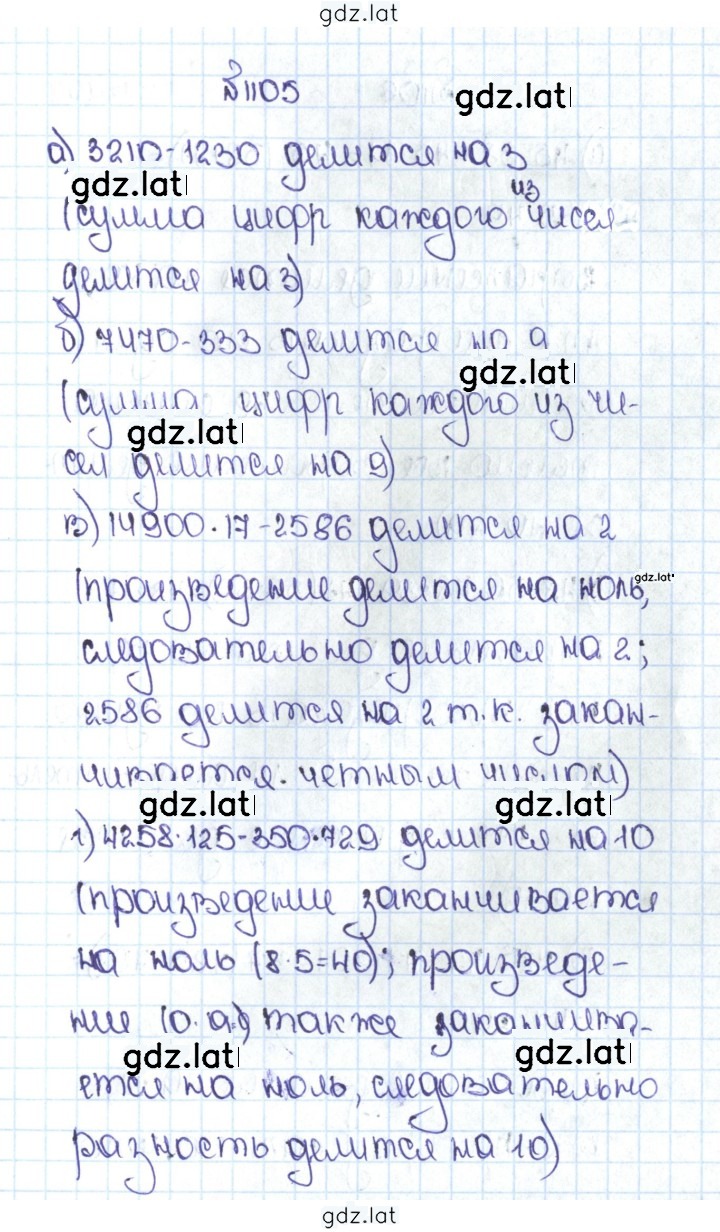 gdz.lat
№1105
gdz.lat
а) 3210-1230 делится на 3
gdz.lat
из
(сумма цифр каждого чисел
делится на 3)
б) 7470-333 делится на 9
gdz.lat
(сумма цифр каждого из чи-
gdz.lat
сел делится на 9)
в) 14900·17-2586 делится на 2
gdz.lat
(произведение делится на ноль,
следовательно делится на 2;
2586 делится на 2 т.к. закан-
чивается четным числом)
gdz.lat gdz.lat
г) 4258·125-350·729 делится на 10
(произведение заканчивается
на ноль (8·5=40); произведе-
ние (0·9) также заканчива-
gdz.lat gdz.lat
ется на ноль, следовательно
разность делится на 10)
gdz.lat